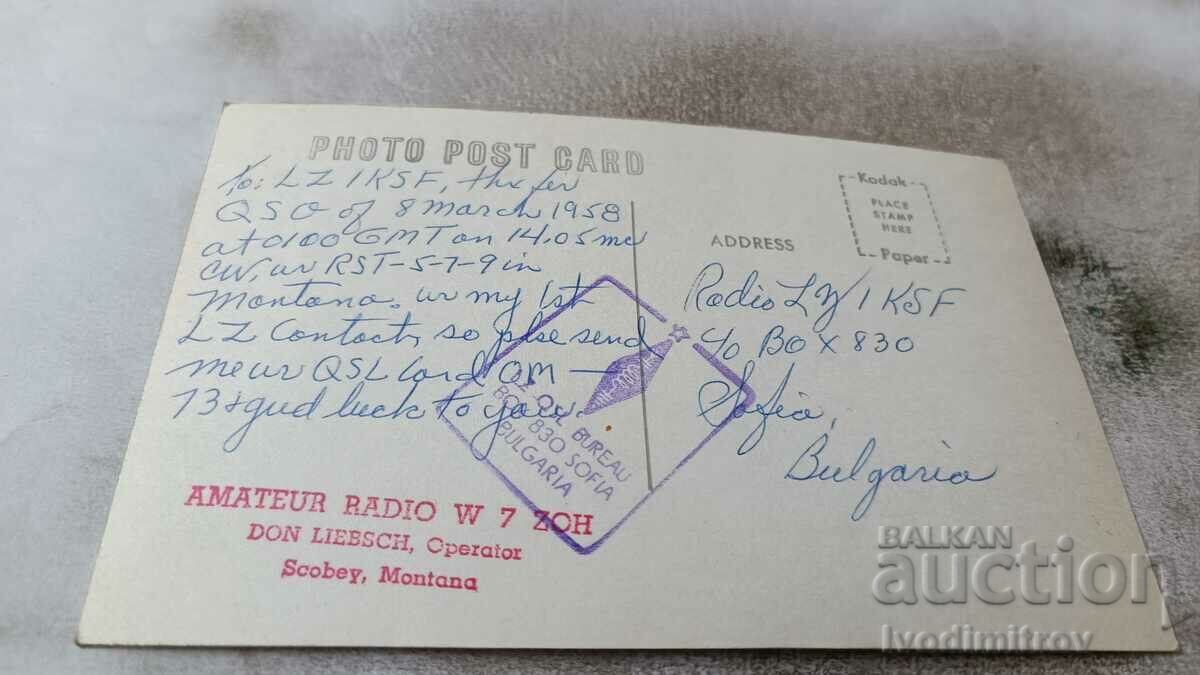 PHOTO POST CARD
To: LZ1KSF, thx fer
QSO of 8 March 1958
at 0100 GMT on 14.05 mc
CW, ur RST-5-7-9 in
Montana. ur my 1st
LZ Contact, so plse send
me ur QSL Card OM —
73 & gud luck to you.
AMATEUR RADIO W 7 ZOH
DON LIEBSCH, Operator
Scobey, Montana
QSL BUREAU
BOX 830 SOFIA
BULGARIA
Kodak
PLACE
STAMP
HERE
Paper
ADDRESS
Radio LZ1KSF
c/o BOX 830
Sofia,
Bulgaria
BALKAN
auction
Ivodimitrov